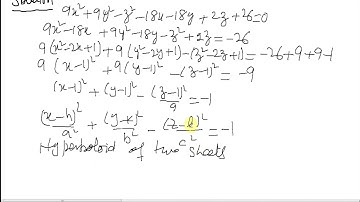 Solution
9x²+9y²-z²-18x-18y+2z+26=0
9x²-18x+9y²-18y-z²+2z=-26
9(x²-2x+1)+9(y²-2y+1)-(z²-2z+1)=-26+9+9-1
9(x-1)²+9(y-1)²-(z-1)²=-9
(x-1)²+(y-1)²-(z-1)²/9=-1
(x-h)²/a²+(y-k)²/b²-(z-l)²/c²=-1
Hyperboloid of two sheets